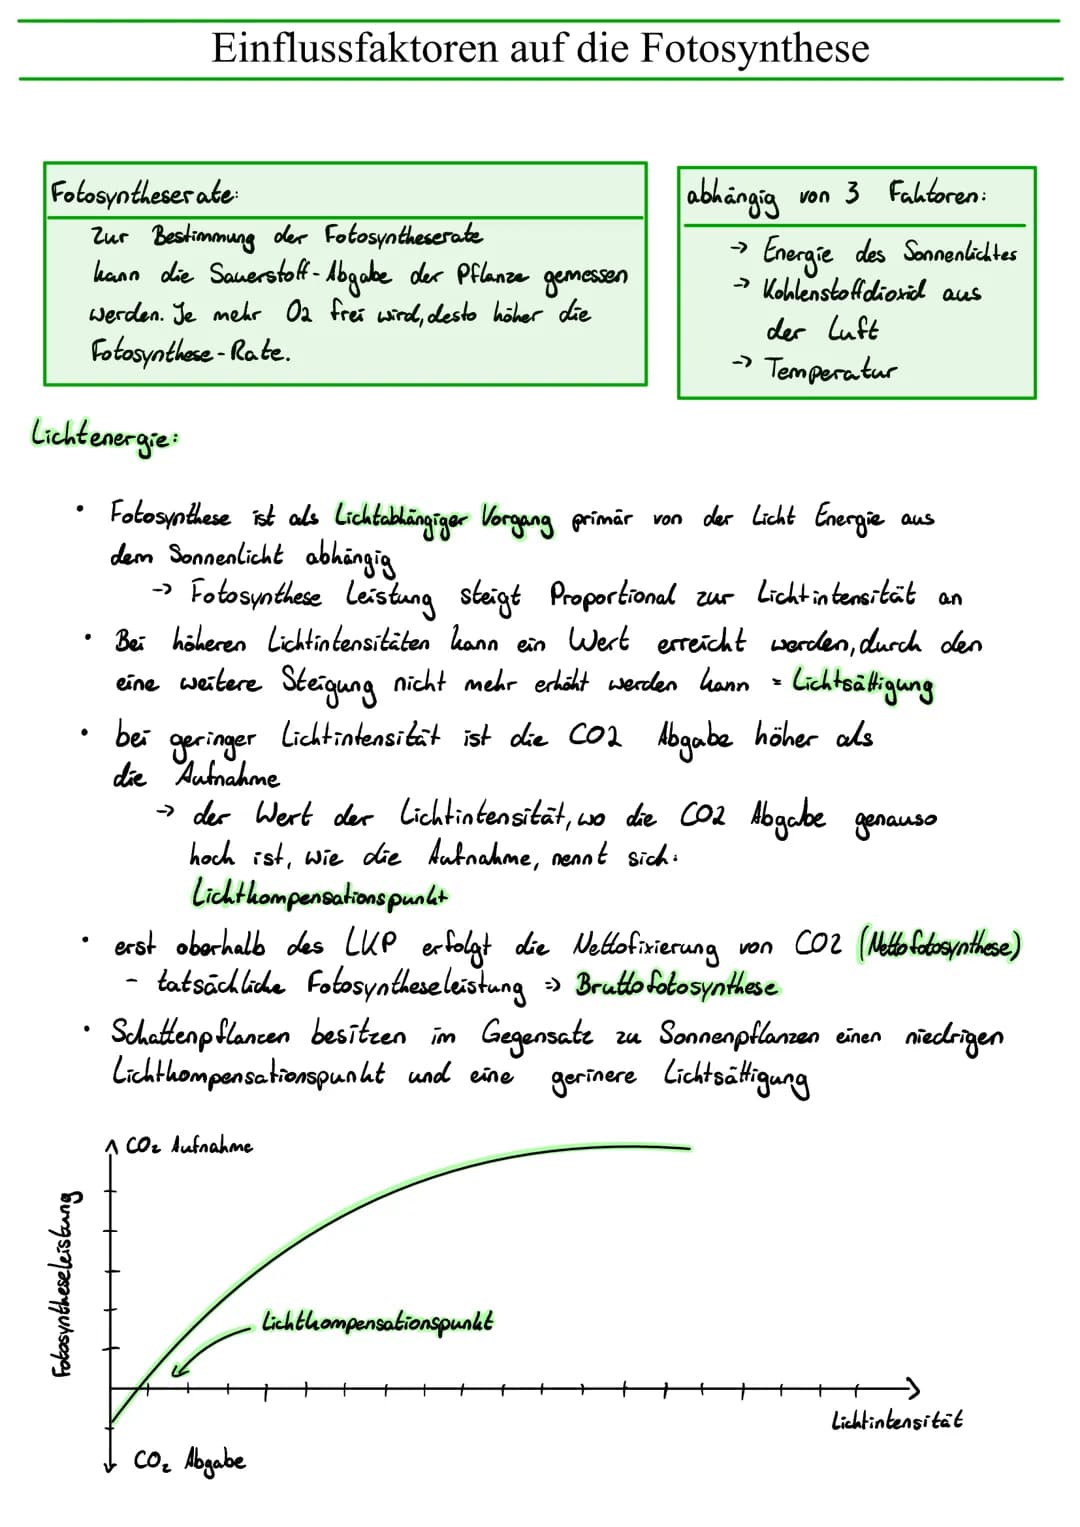 Einflussfaktoren auf die Fotosynthese
Fotosyntheserate:
Zur Bestimmung der Fotosyntheserate
kann die Sauerstoff-Abgabe der Pflanze gemessen
werden. Je mehr O2 frei wird, desto höher die
Fotosynthese-Rate.
abhängig von 3 Faktoren:
-> Energie des Sonnenlichtes
-> Kohlenstoffdioxid aus
der Luft
-> Temperatur
Lichtenergie:
• Fotosynthese ist als Lichtabhängiger Vorgang primär von der Licht Energie aus
dem Sonnenlicht abhängig
-> Fotosynthese Leistung steigt Proportional zur Lichtintensität an
• Bei höheren Lichtintensitäten kann ein Wert erreicht werden, durch den
eine weitere Steigung nicht mehr erhöht werden kann = Lichtsättigung
• bei geringer Lichtintensität ist die CO2 Abgabe höher als
die Aufnahme
-> der Wert der Lichtintensität, wo die CO2 Abgabe genauso
hoch ist, wie die Aufnahme, nennt sich:
Lichtkompensationspunkt
• erst oberhalb des LKP erfolgt die Nettofixierung von CO2 (Nettofotosynthese)
- tatsächliche Fotosyntheseleistung => Bruttofotosynthese
• Schattenpflancen besitzen im Gegensatz zu Sonnenpflanzen einen niedrigen
Lichtkompensationspunkt und eine gerinere Lichtsättigung
CO₂ Aufnahme
Fotosyntheseleistung
Lichtkompensationspunkt
Lichtintensität
CO₂ Abgabe